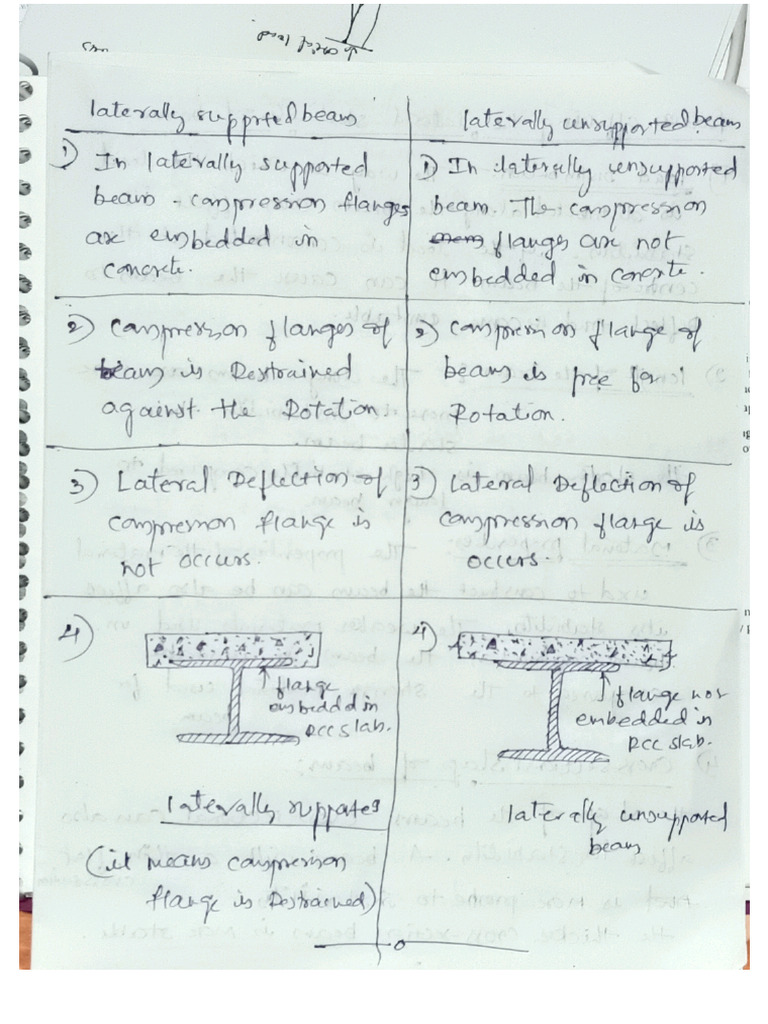 laterally supported beam
laterally unsupported beam
1) In laterally supported
beam - compression flanges
are embedded in
concrete.
1) In laterally unsupported
beam. The compression
flanges are not
embedded in concrete.
2) Compression flanges of
beam is Restrained
against the Rotation.
2) compression flange of
beam is free for
Rotation.
3) Lateral Deflection of
compression flange is
not occurs.
3) Lateral Deflection of
compression flange is
occurs.
4)
flange
embedded in
RCC slab.
laterally supported
(it means compression
flange is Restrained)
4)
flange not
embedded in
RCC slab.
laterally unsupported
beam